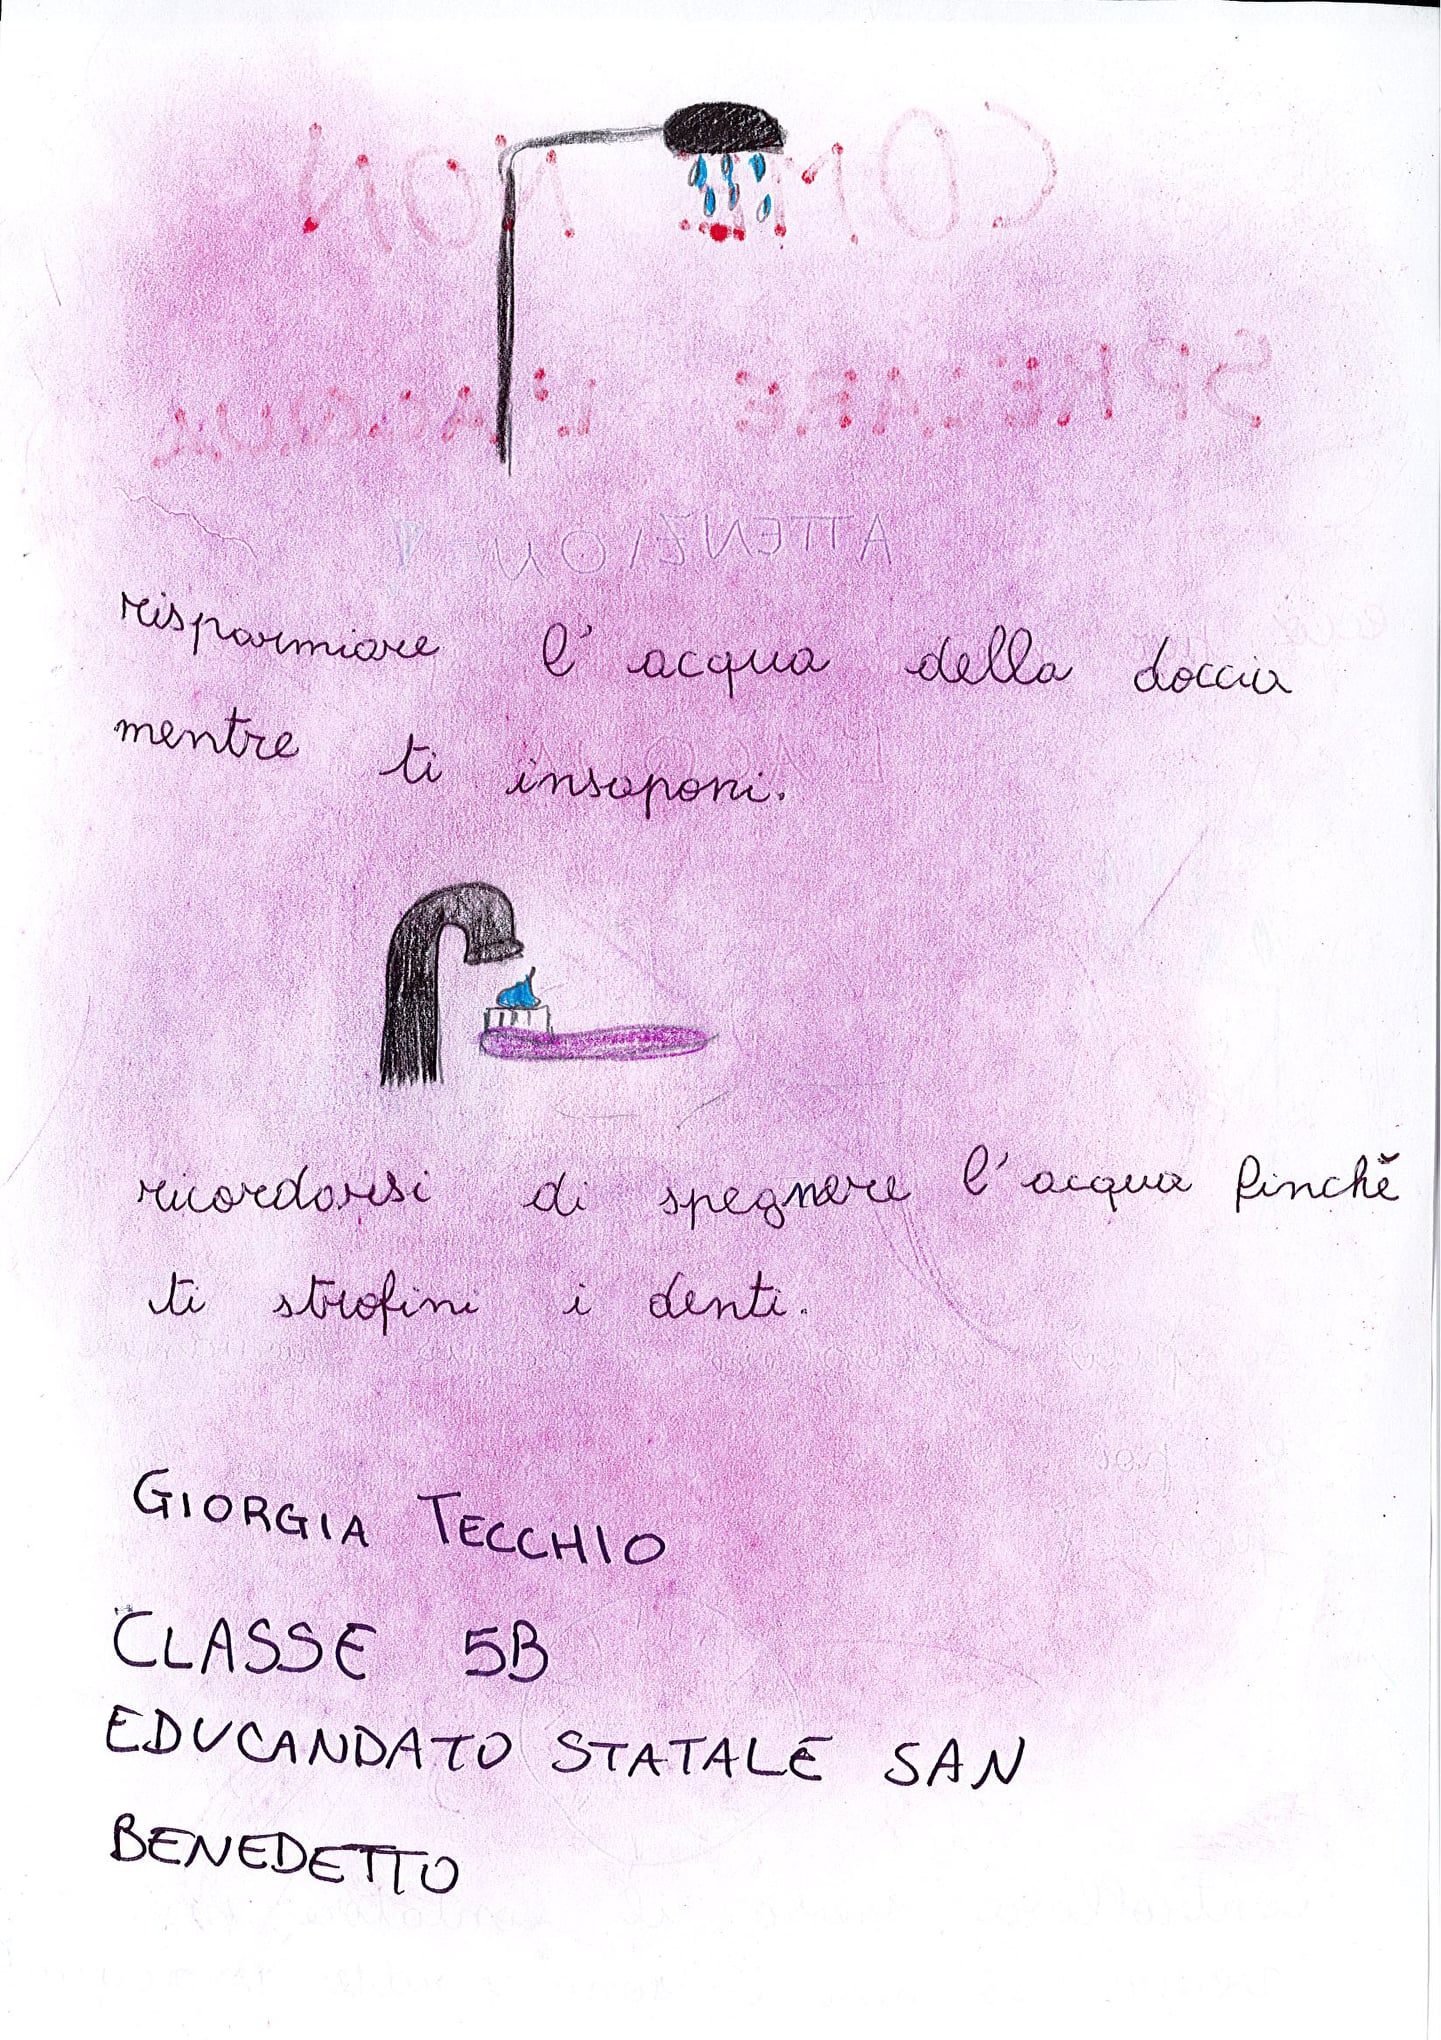 COME NON
SPRECARE L'ACQUA
ATTENZIONE!
risparmiare l'acqua della doccia
mentre ti insaponi.
ricordarsi di spegnere l'acqua finchè
ti strofini i denti.
GIORGIA TECCHIO
CLASSE 5B
EDUCANDATO STATALE SAN
BENEDETTO